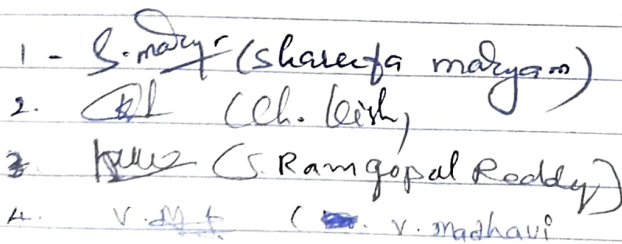 1 - S. mary (Shareefa maryam)
2. (Ch.
3 (S. Ramgopal Reddy)
4. V. (V. madhavi